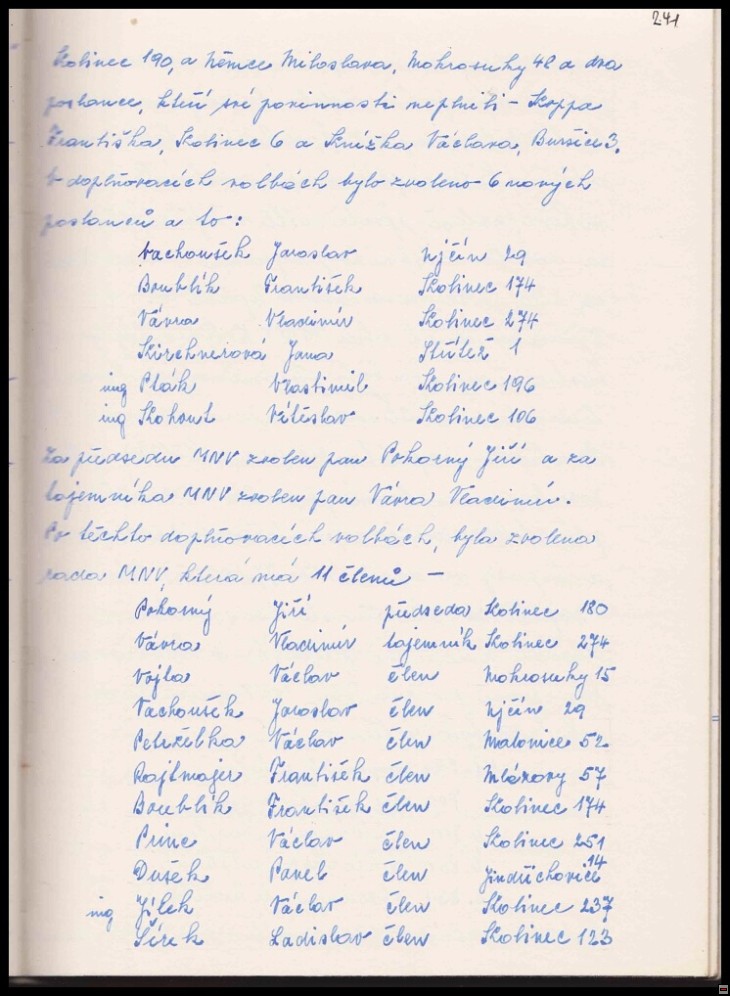 241
Kolinec 190, a Němce Miloslava, Mokrosuky 48 a dva
poslance, kteří své povinnosti neplnili - Koppa
Františka, Kolinec 6 a Knížka Václava, Buršice 3.
V doplňovacích volbách bylo zvoleno 6 nových
poslanců a to:
Vachoušek Jaroslav Ujčín 29
Boublík František Kolinec 174
Vávra Vladimír Kolinec 274
Kirchnerová Jana Střítež 1
ing Pták Vlastimil Kolinec 196
ing Kohout Vítěslav Kolinec 106
Za předsedu MNV zvolen pan Pokorný Jiří a za
tajemníka MNV zvolen pan Vávra Vladimír.
Po těchto doplňovacích volbách, byla zvolena
rada MNV, která má 11 členů -
Pokorný Jiří předseda Kolinec 180
Vávra Vladimír tajemník Kolinec 274
Vojta Václav člen Mokrosuky 15
Vachoušek Jaroslav člen Ujčín 29
Petrželka Václav člen Malonice 52
Rajtmajer František člen Mlázovy 57
Boublík František člen Kolinec 174
Princ Václav člen Kolinec 251
Dušek Pavel člen Jindřichovice 14
ing Jílek Václav člen Kolinec 237
Šírek Ladislav člen Kolinec 123